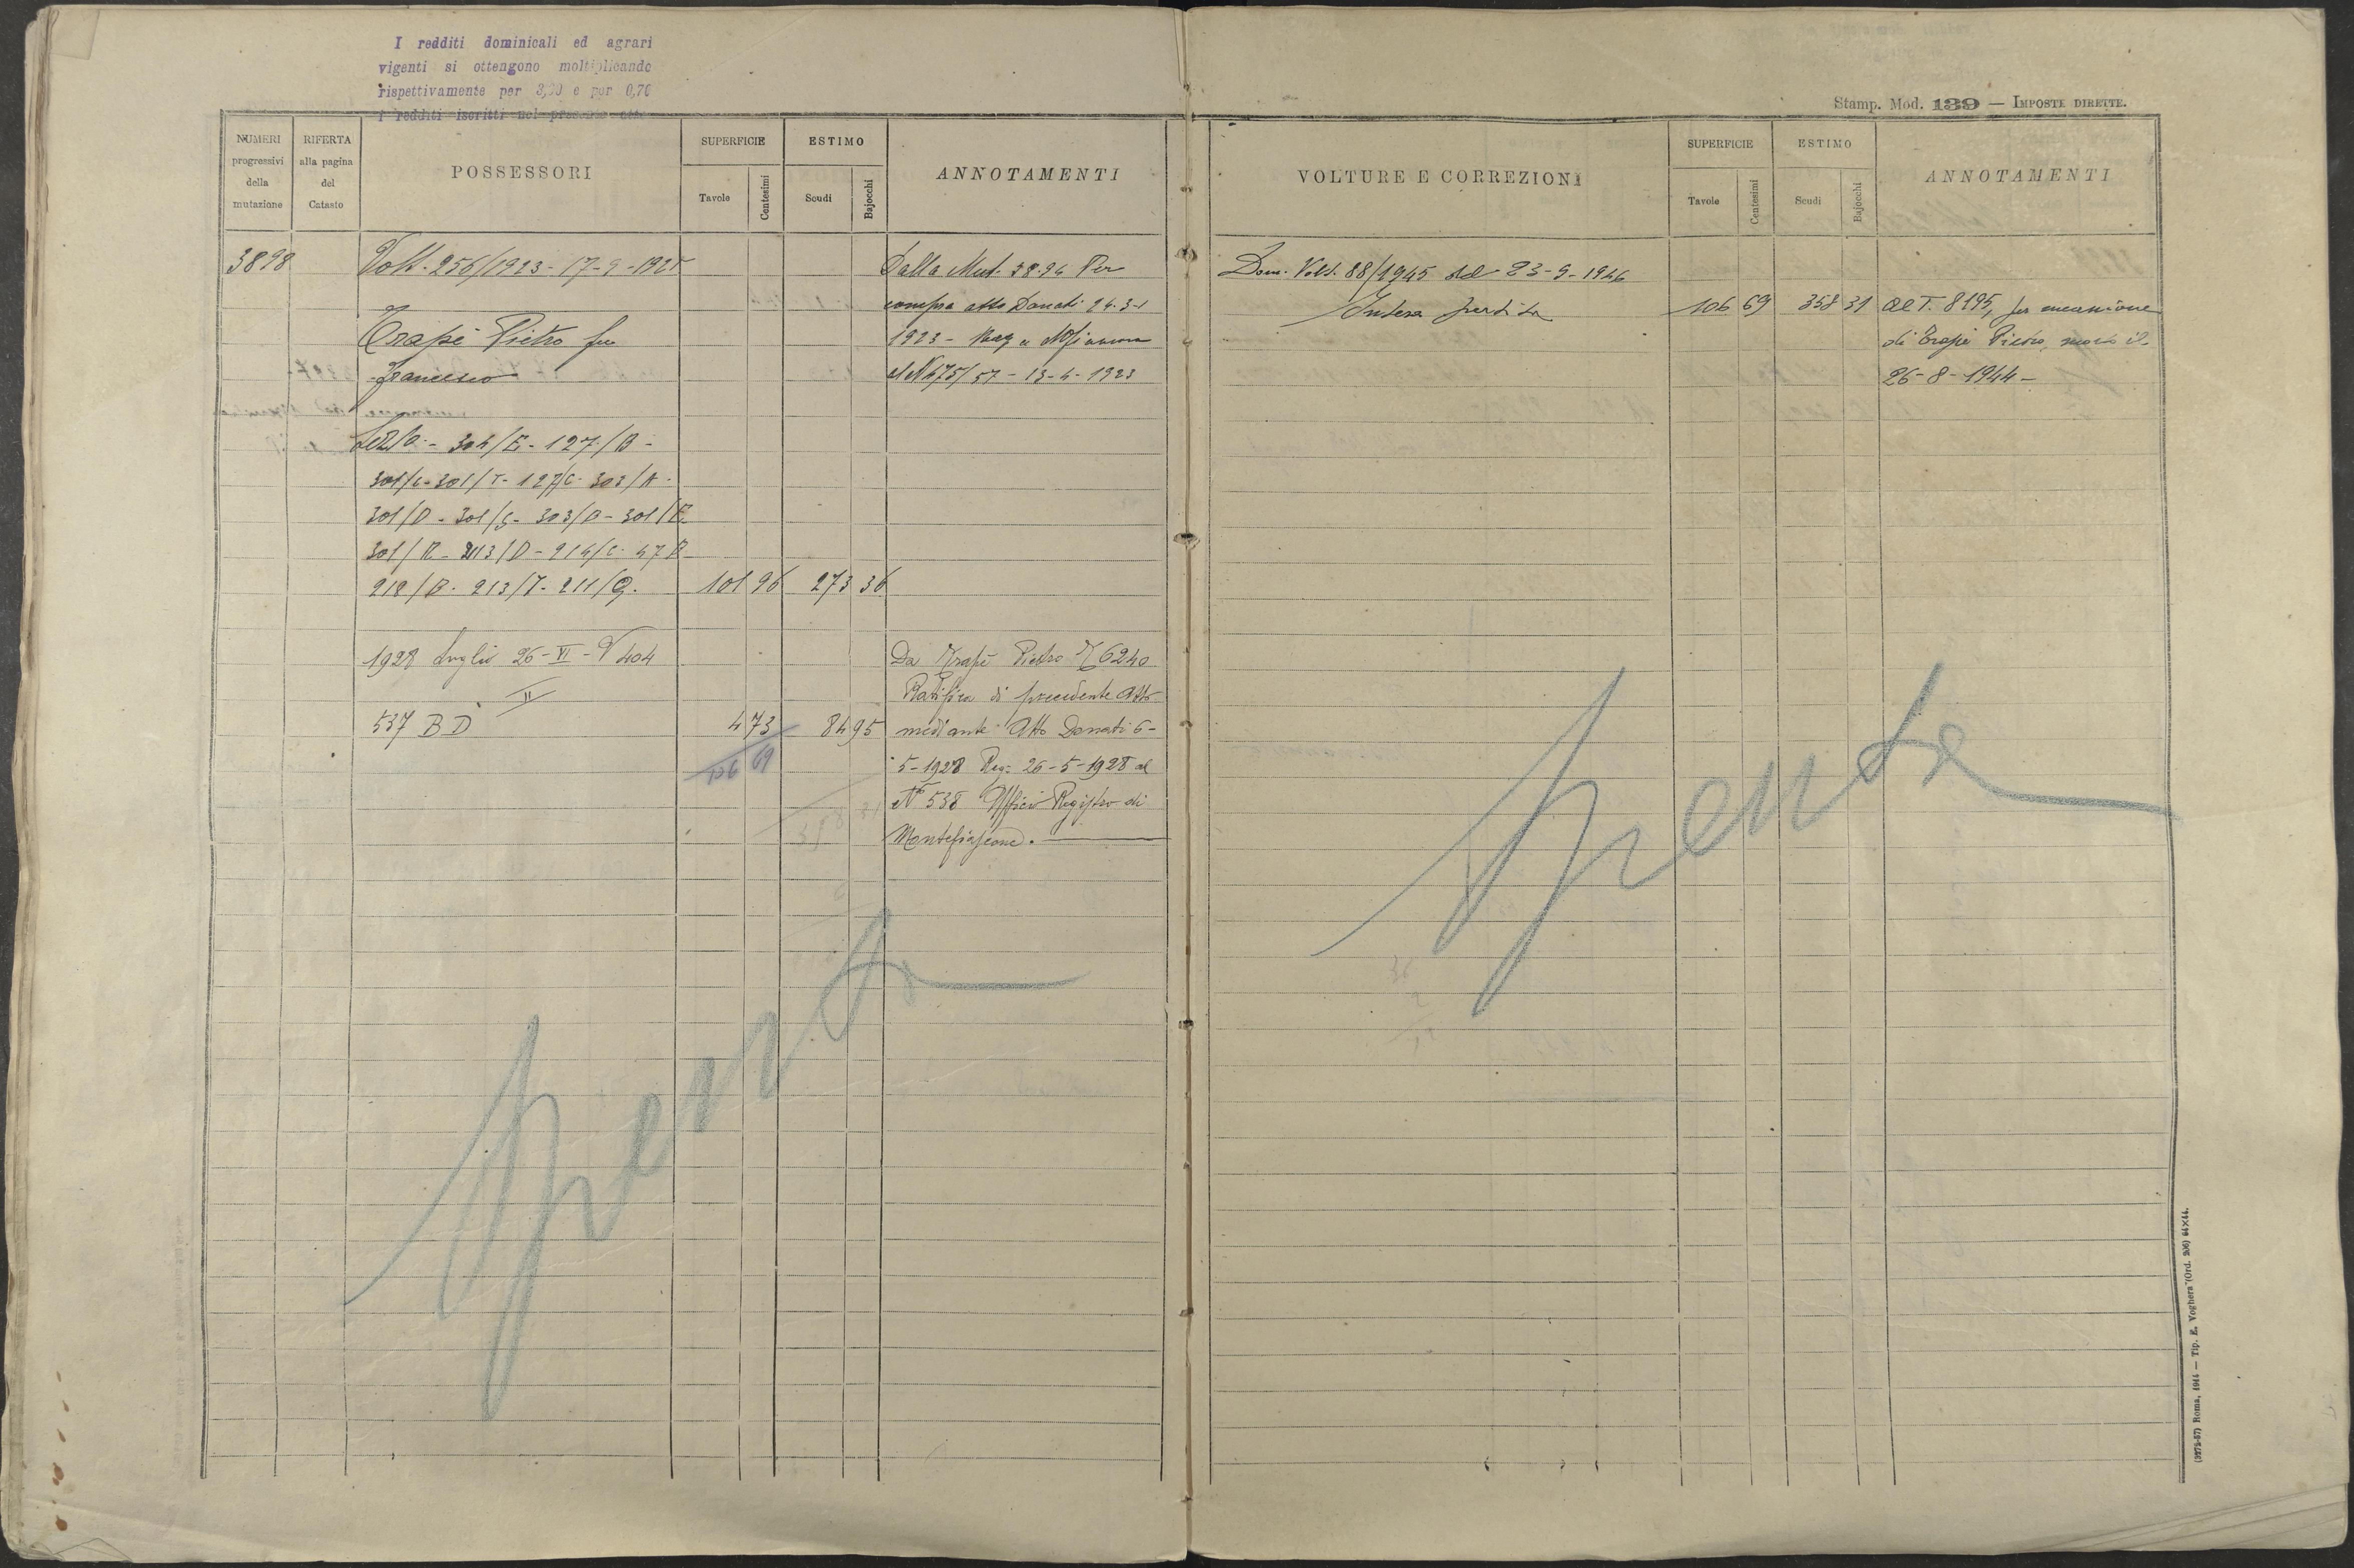 I redditi dominicali ed agrari
vigenti si ottengono moltiplicando
rispettivamente per 3,20 e per 0,70
i redditi iscritti nel presente
NUMERI progressivi della mutazione
RIFERTA alla pagina del Catasto
POSSESSORI
SUPERFICIE
Tavole
Centesimi
ESTIMO
Scudi
Bajocchi
ANNOTAMENTI
3898
Volt. 256/1923 - 17-9-192
Trapè Pietro fu
Francesco
304/E - 127/B -
301/C - 301/T - 127/C - 303/A -
301/D - 301/G - 303/B - 301/E
301/R - 213/D - 214/C - 47 B
212/B - 213/T - 211/Q.
101 96 273 36
Dalla Mut. 38.94 Per
compra atto Donati 24-3-
1923 - Reg a
al N 475/57 - 13-4-1923
1928 Luglio 26 - VI - V 404
II
537 BD
4 73 84 95
106 69
358 31
Da Trapè Pietro M 6240
Ratifica di precedente Atto
mediante Atto Donati 6-
5-1928 Reg: 26-5-1928 al
N° 538 Ufficio Registro di
Montefiascone.
Spenta
Stamp. Mod. 139 — IMPOSTE DIRETTE.
VOLTURE E CORREZIONI
SUPERFICIE
Tavole
Centesimi
ESTIMO
Scudi
Bajocchi
ANNOTAMENTI
Dom. Volt. 88/1945 del 23-9-1946
Intera partita
106 69 358 31
Al T. 8195, per successione
di Trapè Pietro, morto il
26-8-1944 -
Spenta
(3272-57) Roma, 1914 — Tip. E. Voghera (Ord. 206) 64×44.